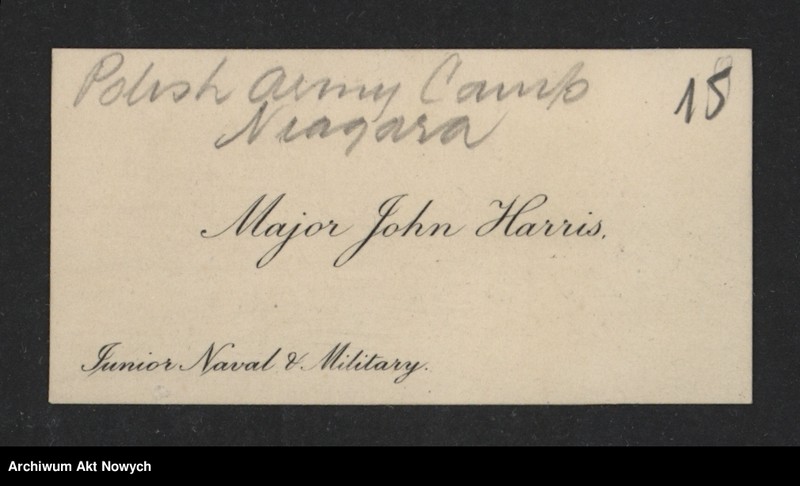 Polish Army Camp
Niagara
18
Major John Harris.
Junior Naval & Military.
Archiwum Akt Nowych